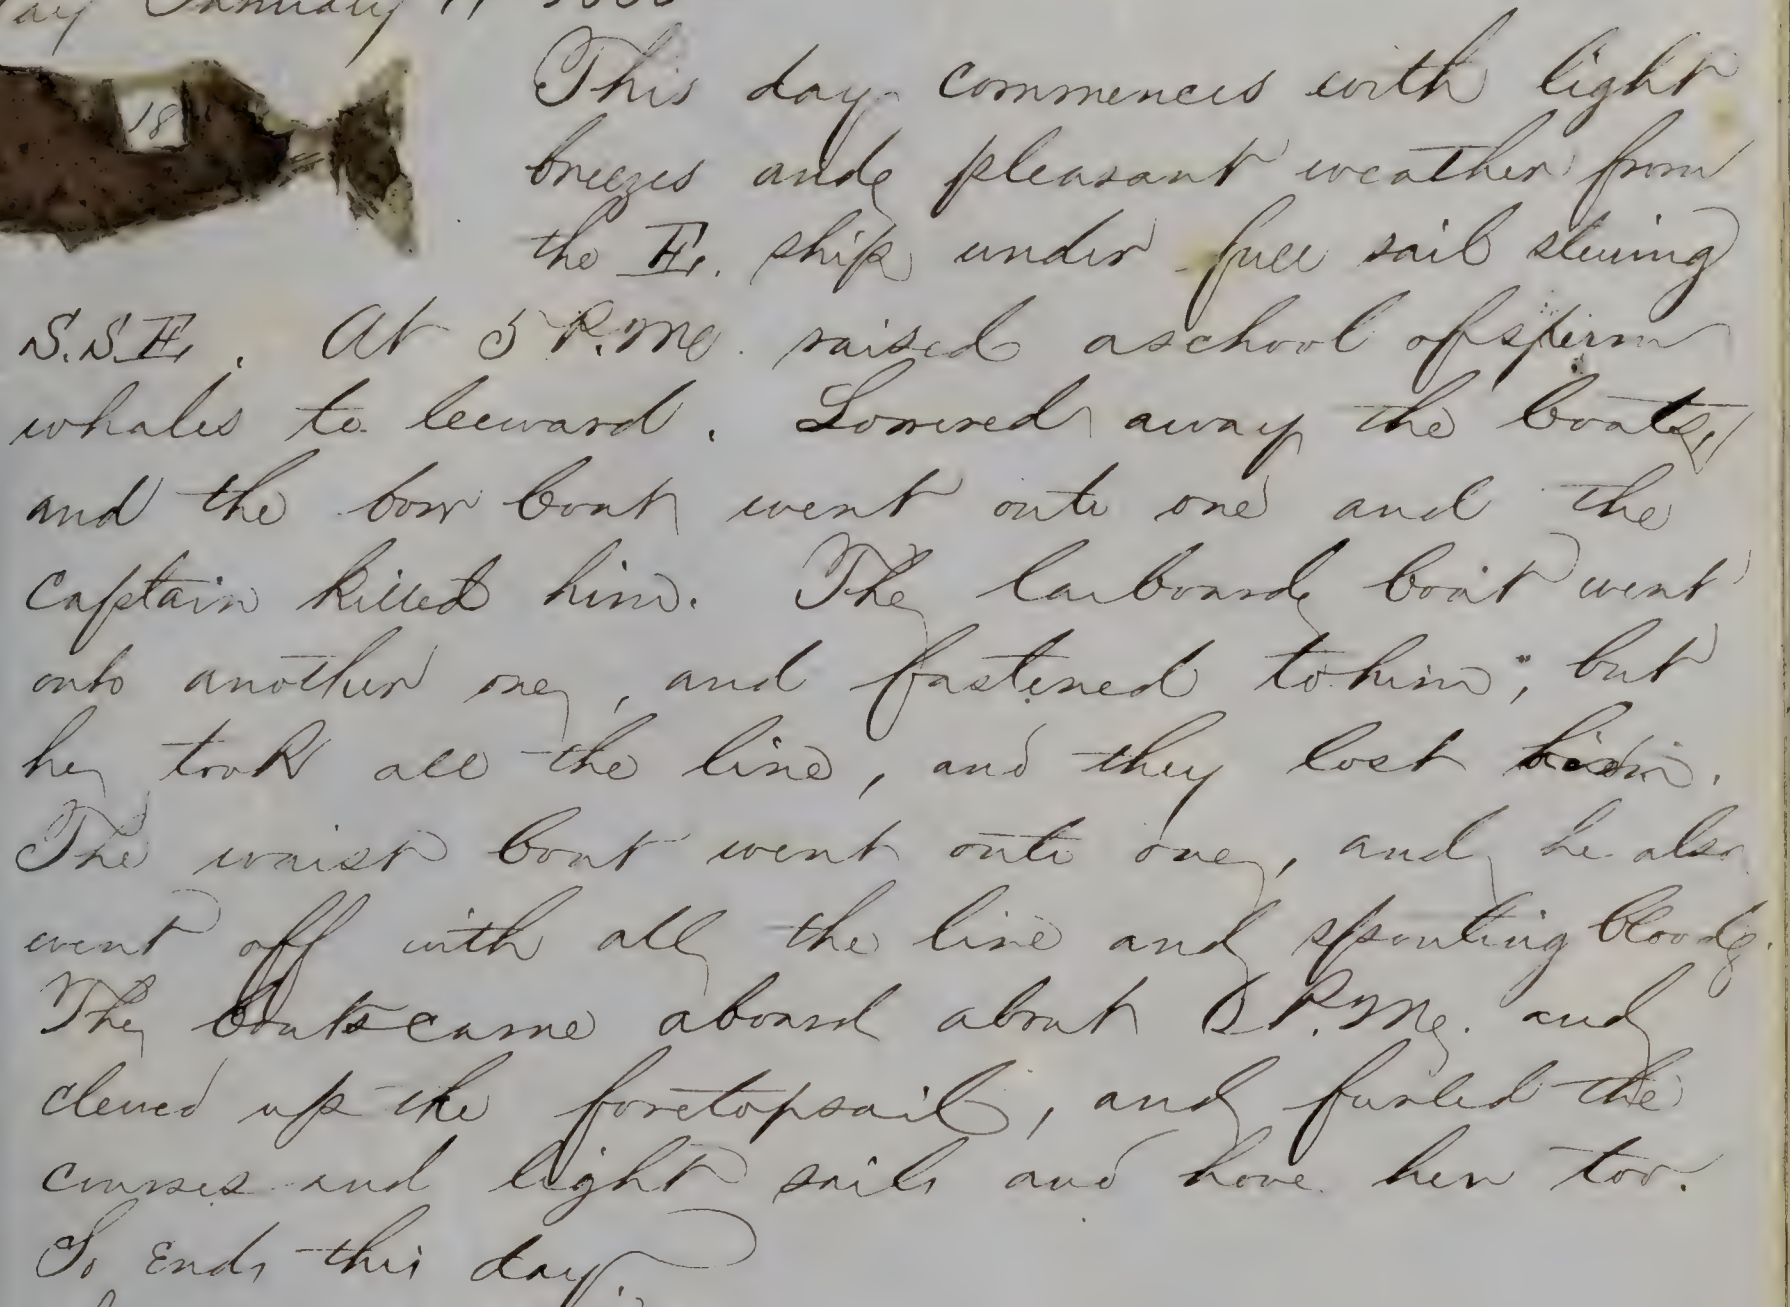 January
18
This day commences with light
breezes and pleasant weather from
the E. ship under full sail steering
S.S.E. At 5 P.M. raised a school of sperm
whales to leeward. Lowered away the boats,
and the bow boat went onto one and the
captain killed him. The larboard boat went
onto another one, and fastened to him, but
he took all the line, and they lost him.
The waist boat went onto one, and he also
went off with all the line and spouting blood.
The boats came aboard about P.M. and
clewed up the foretopsail, and furled the
courses and light sails and hove her too.
So Ends this day.